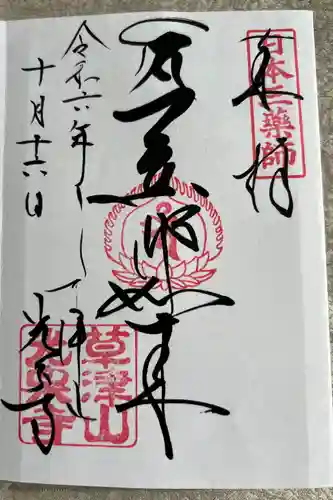 奉拝
日本三薬師
如来
令和六年
十月十六日
光泉寺
草津山
光泉寺